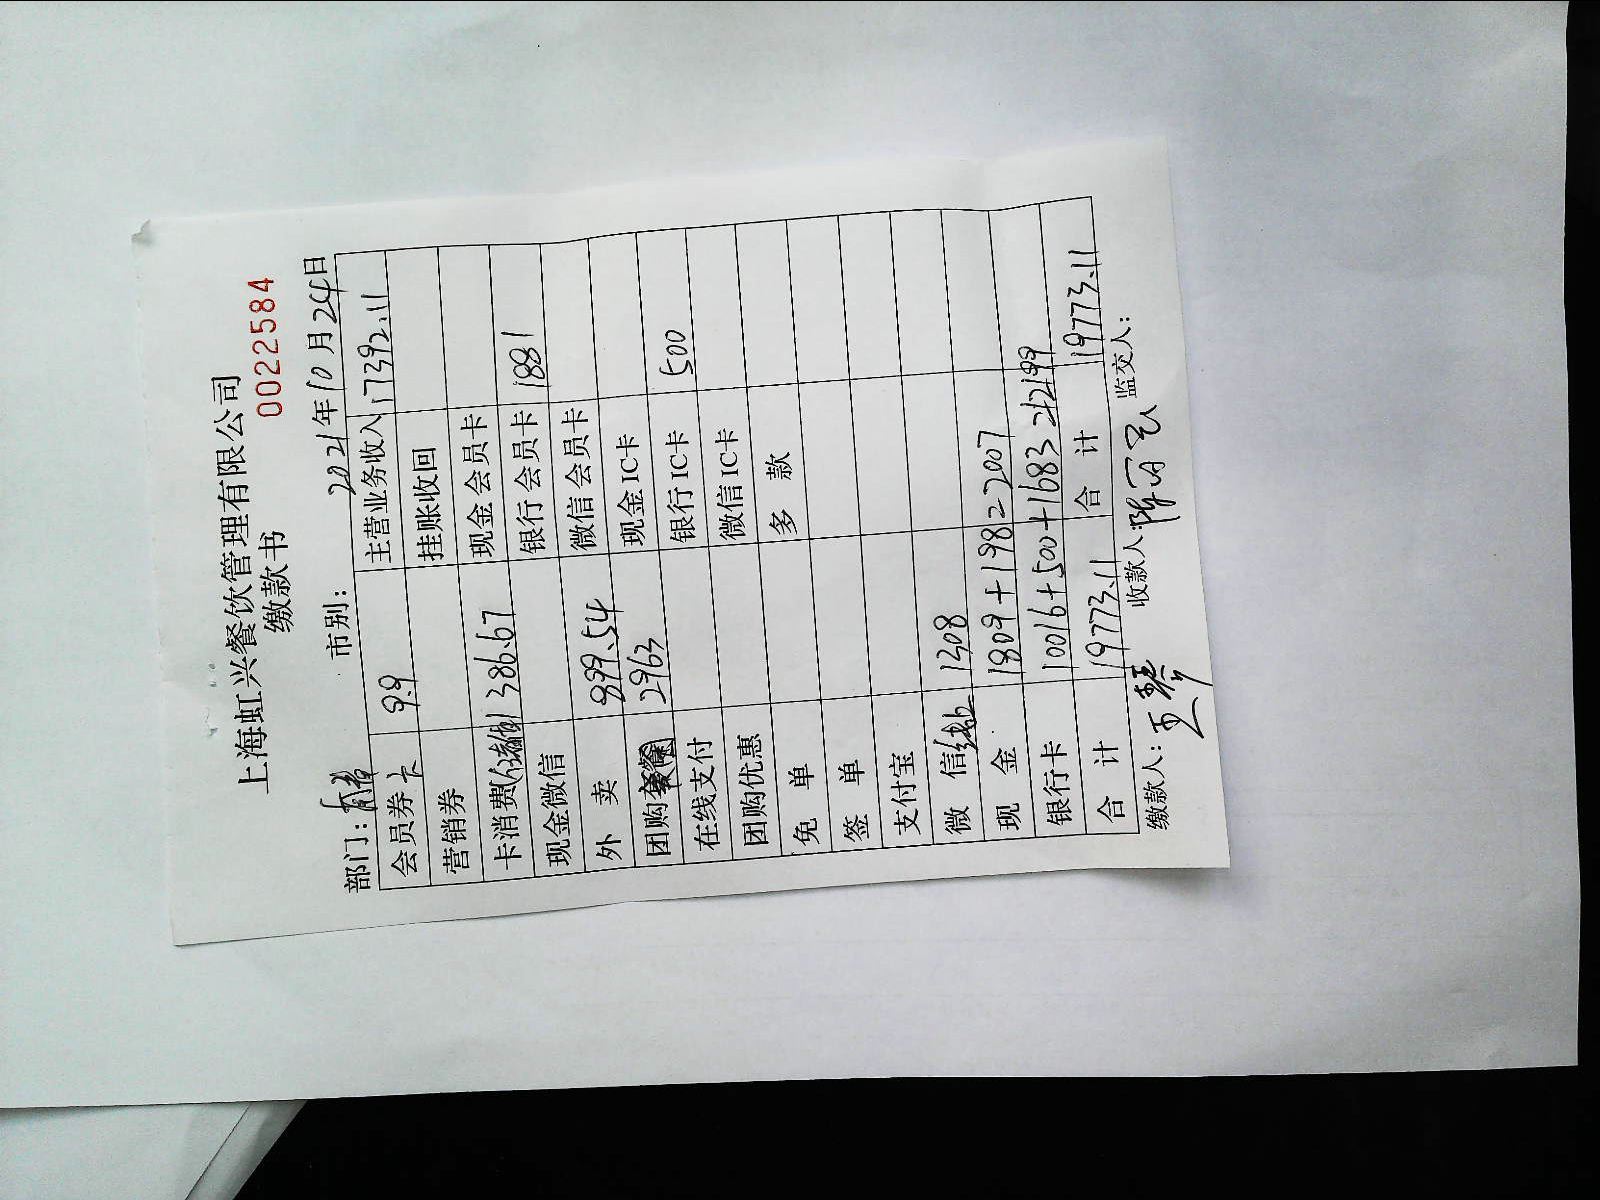 上海虹兴餐饮管理有限公司
缴款书 0022584
部门: 市别: 2021年10月24日
会员券卡 9.9 主营业务收入 17392.11
营销券 挂账收回
卡消费 1386.67 现金会员卡
现金微信 银行会员卡 1881
外 卖 899.54 微信会员卡
团购 2963 现金IC卡
在线支付 银行IC卡 500
团购优惠 微信IC卡
免 单 多 款
签 单
支付宝
微 信 1308
现 金 1809+198=2007
银行卡 10016+500+1683=12199
合 计 19773.11 合 计 19773.11
缴款人: 收款人: 监交人: